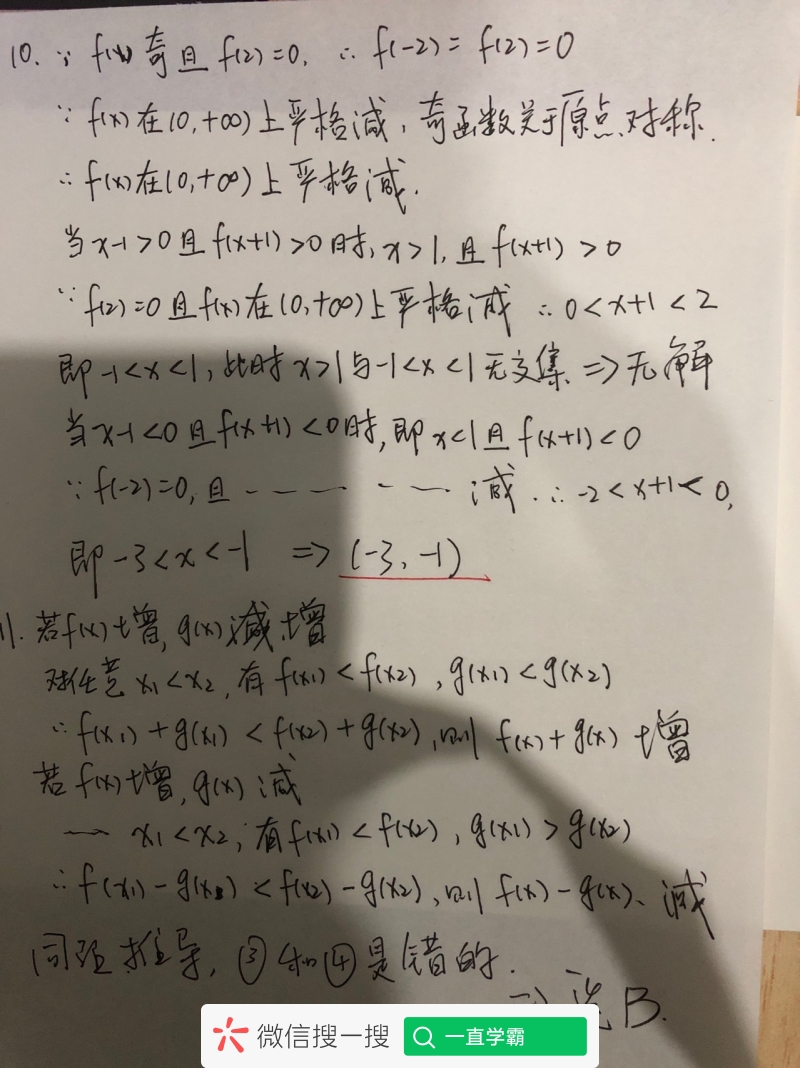 10. ∵ f(x)奇且f(2)=0, ∴ f(-2)=f(2)=0
∵ f(x)在(0,+∞)上严格减,奇函数关于原点对称.
∴ f(x)在(0,+∞)上严格减.
当x-1>0且f(x+1)>0时,x>1,且f(x+1)>0
∵ f(2)=0且f(x)在(0,+∞)上严格减 ∴ 0<x+1<2
即-1<x<1,此时x>1与-1<x<1无交集 => 无解
当x-1<0且f(x+1)<0时,即x<1且f(x+1)<0
∵ f(-2)=0,且 — — — — — 减.∴ -2<x+1<0,
即-3<x<-1 => (-3,-1)
11. 若f(x)增,g(x)增
对任意x1<x2,有f(x1)<f(x2),g(x1)<g(x2)
∴ f(x1)+g(x1)<f(x2)+g(x2),则f(x)+g(x)增
若f(x)增,g(x)减
— x1<x2,有f(x1)<f(x2),g(x1)>g(x2)
∴ f(x1)-g(x1)<f(x2)-g(x2),则f(x)-g(x)、减
同理推导,③和④是错的.
=> 选B.
微信搜一搜
一直学霸